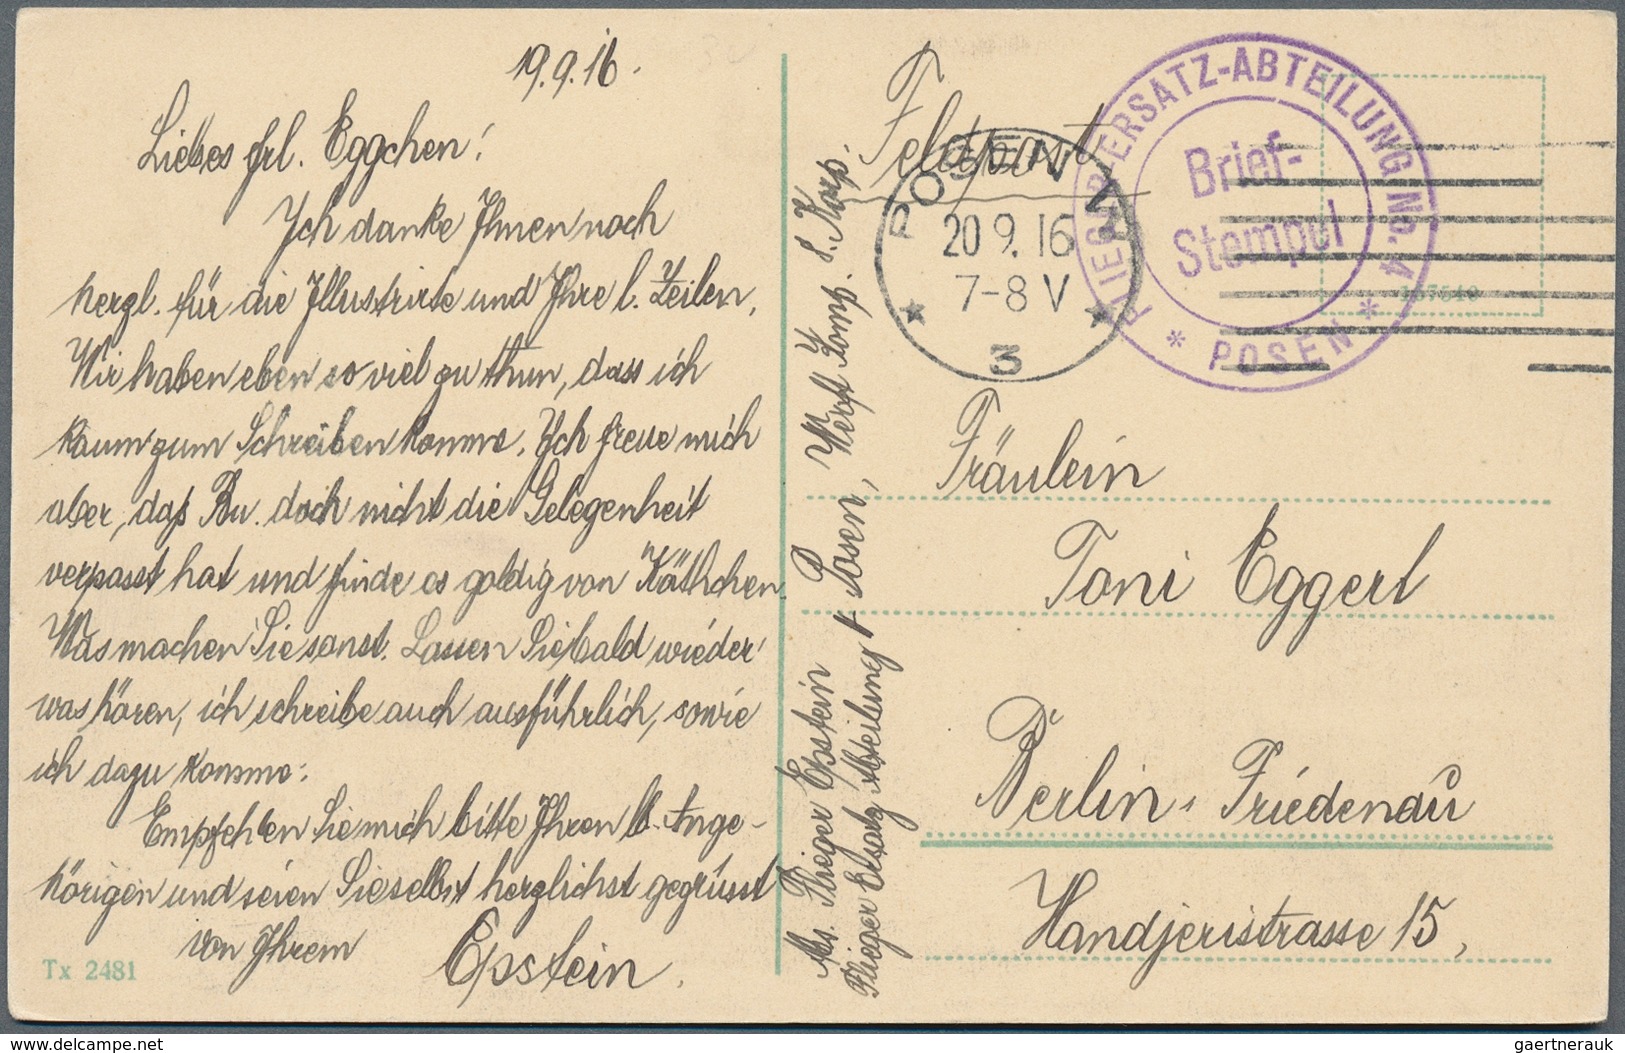 19.9.16.
Liebes Frl. Eggchen!
Ich danke Ihnen noch
herzl. für die Illustrirte und Ihre l. Zeilen.
Wir haben eben so viel zu thun, dass ich
kaum zum Schreiben komme. Ich freue mich
aber, daß Bu. doch nicht die Gelegenheit
verpasst hat und finde es goldig von Käthchen.
Was machen Sie sonst. Lassen Sie bald wieder
was hören, ich schreibe auch ausführlich, sowie
ich dazu komme.
Empfehlen Sie mich bitte Ihren lb. Ange-
hörigen und seien Sie selbst herzlichst gegrüsst
von Ihrem
Epstein.
Tx 2481
Abs. Flieger Epstein
Flieger Ersatz Abteilung 4 Posen, Werft Komp. 8. Korp.
Feldpost
POSEN
20 9. 16
7-8 V
3
FLIEGER-ERSATZ-ABTEILUNG No. 4
* POSEN *
Brief-
Stempel
Fräulein
Toni Eggerl
Berlin-Friedenau
Handjeristrasse 15,
© www.delcampe.net
gaertnerauk